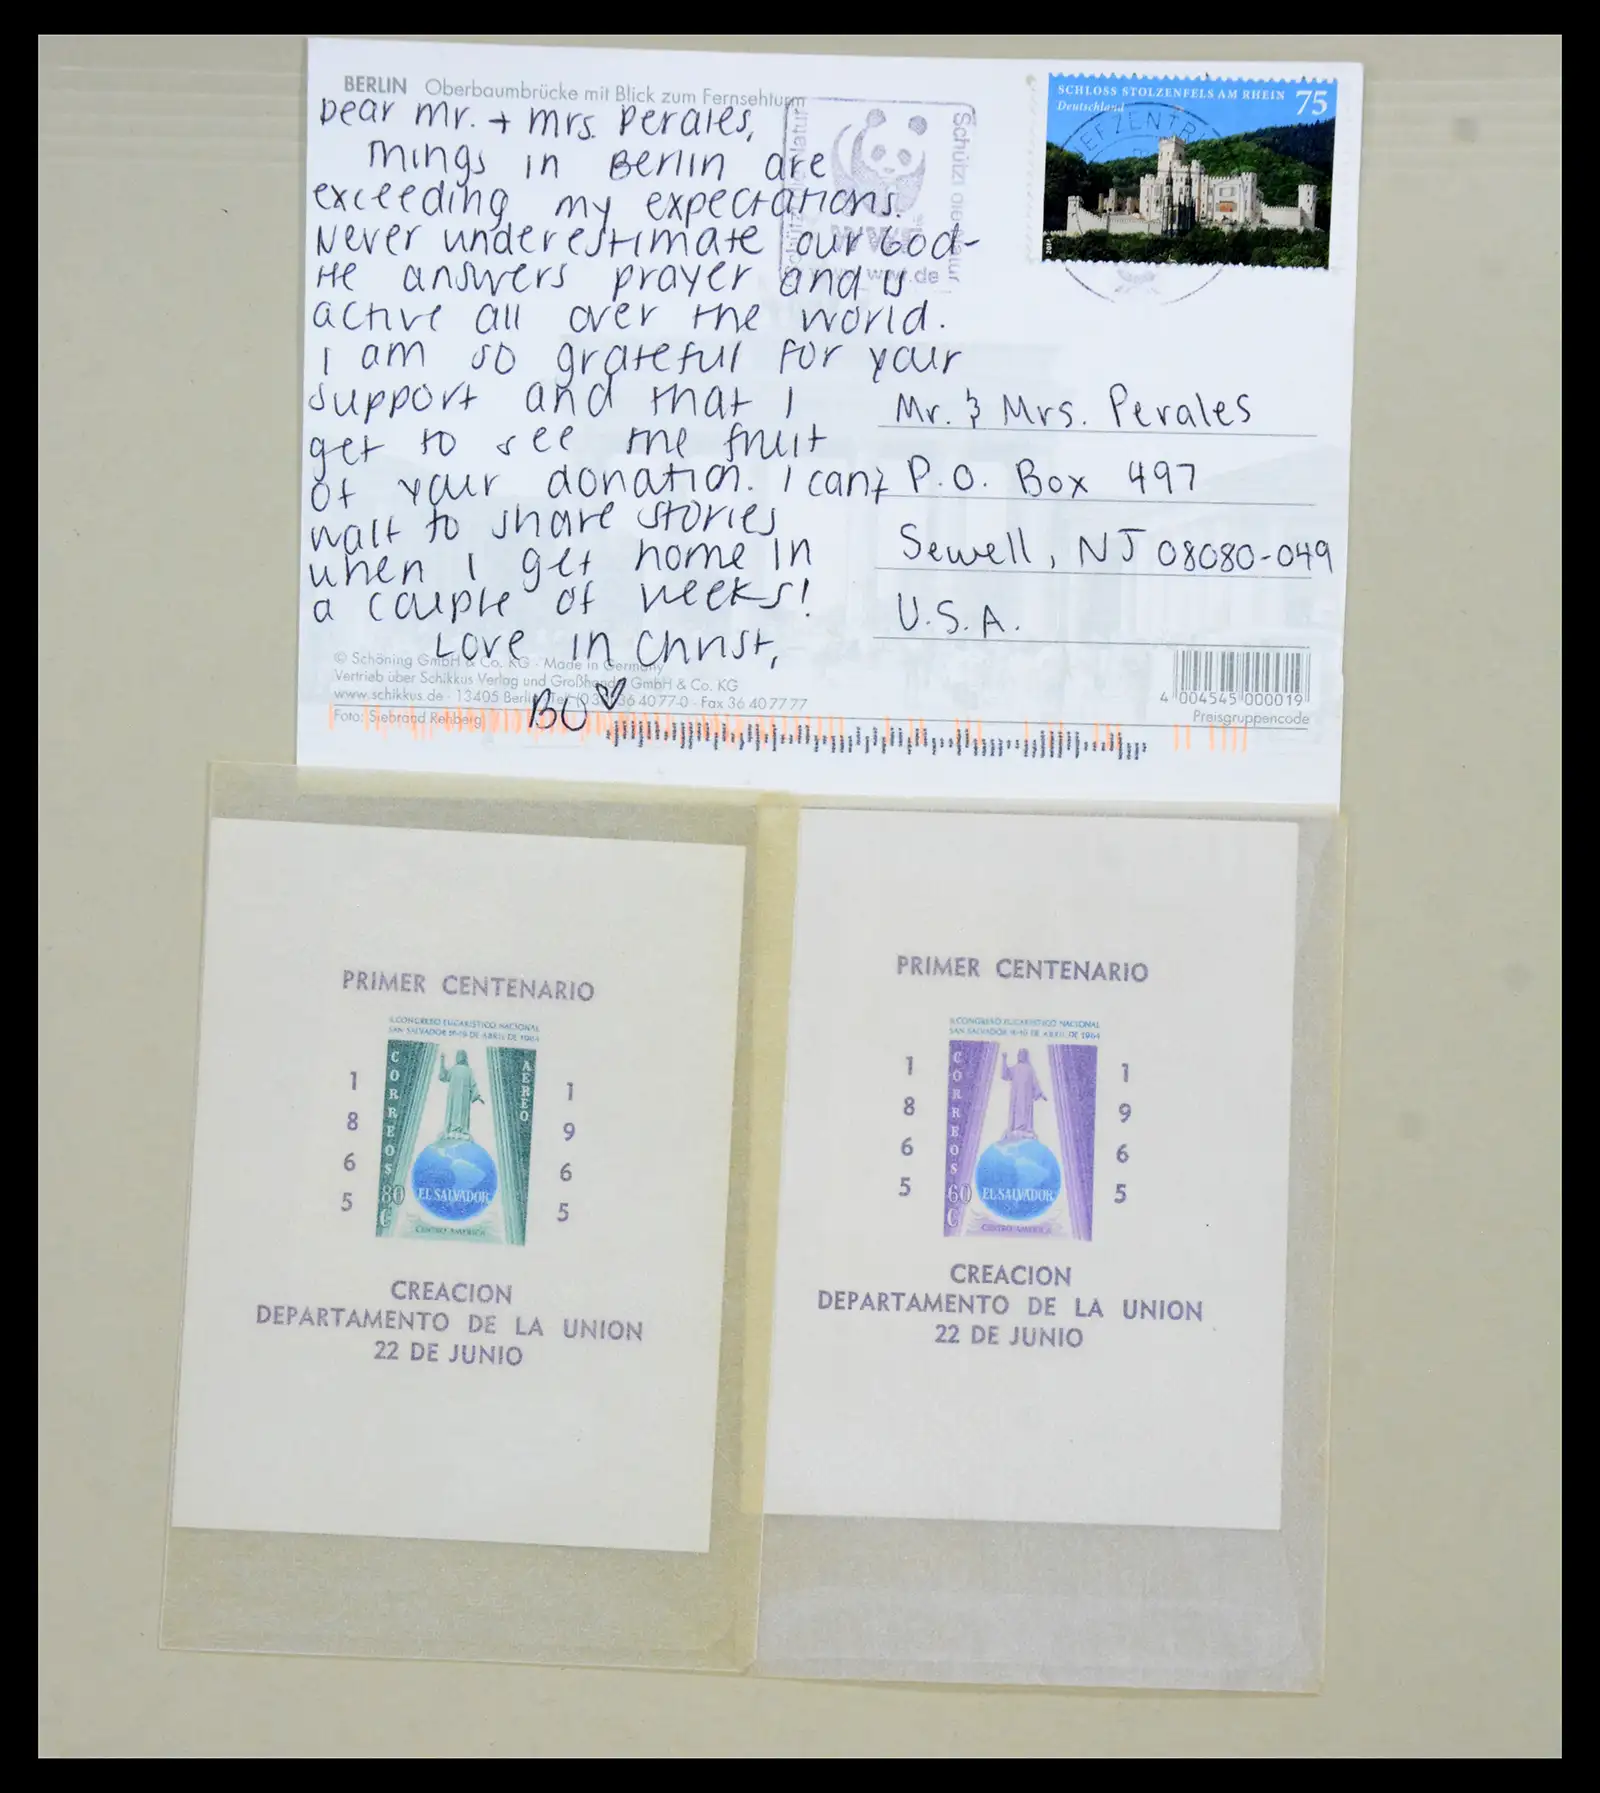 BERLIN Oberbaumbrücke mit Blick zum Fernsehturm
Dear Mr. + Mrs. Perales,
Things in Berlin are
exceeding my expectations.
Never underestimate our God-
He answers prayer and is
active all over the world.
I am so grateful for your
support and that I
get to see the fruit
of your donation. I can't
wait to share stories
when I get home in
a couple of weeks!
Love in Christ,
© Schöning GmbH & Co. KG · Made in Germany
Vertrieb über Schikkus Verlag und Großhandels GmbH & Co. KG
www.schikkus.de · 13405 Berlin 36 40 77-0 · Fax 36 40 77 77
Foto: Siebrand Rehberg
SCHLOSS STOLZENFELS AM RHEIN 75
Deutschland
2014
BRIEFZENTRUM
Schützt die Natur
Schützt die Natur
WWF
www.wwf.de
Mr. & Mrs. Perales
P.O. Box 497
Sewell, NJ 08080-049
U.S.A.
4 004545 000019
Preisgruppencode
PRIMER CENTENARIO
II CONGRESO EUCARISTICO NACIONAL
SAN SALVADOR 16-19 DE ABRIL DE 1964
CORREOS
AEREO
1865
1965
80 C
EL SALVADOR
CENTRO AMERICA
CREACION
DEPARTAMENTO DE LA UNION
22 DE JUNIO
PRIMER CENTENARIO
II CONGRESO EUCARISTICO NACIONAL
SAN SALVADOR 16-19 DE ABRIL DE 1964
CORREOS
1865
1965
60 C
EL SALVADOR
CENTRO AMERICA
CREACION
DEPARTAMENTO DE LA UNION
22 DE JUNIO